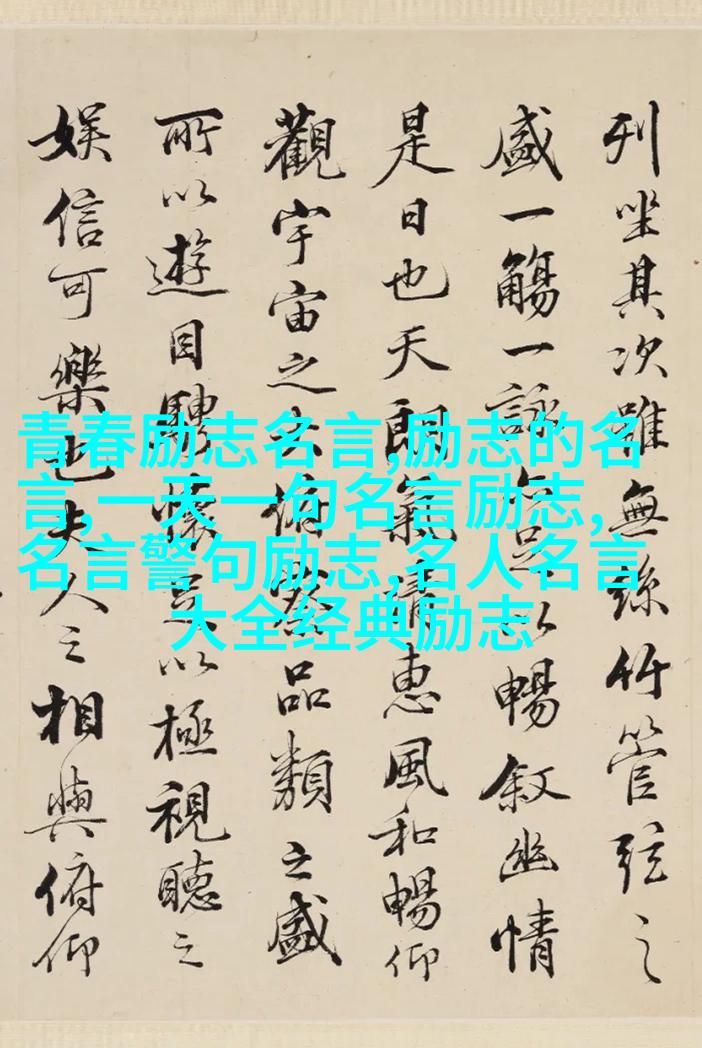 列坐其次雖無絲竹管弦之
盛一觴一詠亦足以暢敘幽情
是日也天朗氣清惠風和暢仰
觀宇宙之大俯察品類之盛
所以遊目騁懷足以極視聽之
娛信可樂也夫人之相與俯仰
青春励志名言,励志的名
言,一天一句名言励志,
名言警句励志,名人名言
大全经典励志